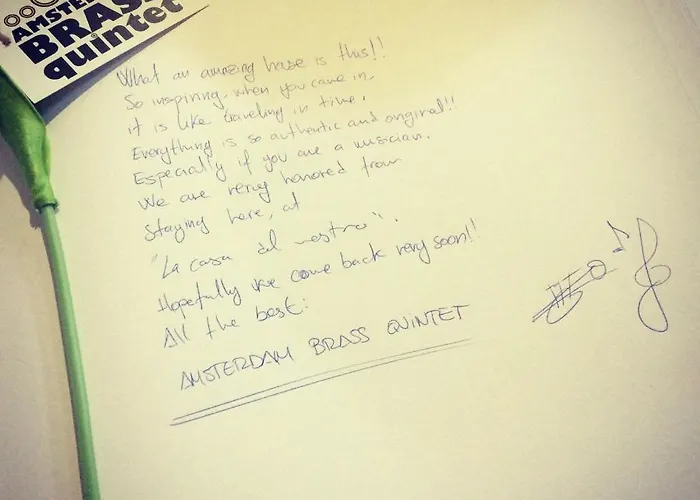 AMSTE
BRASS
quintet
What an amazing house is this!!
So inspiring, when you came in,
it is like traveling in time.
Everything is so authentic and original!!
Especially if you are a musician.
We are very honored from
staying here, at
"La casa del maestro".
Hopefully we come back very soon!!
All the best:
AMSTERDAM BRASS QUINTET